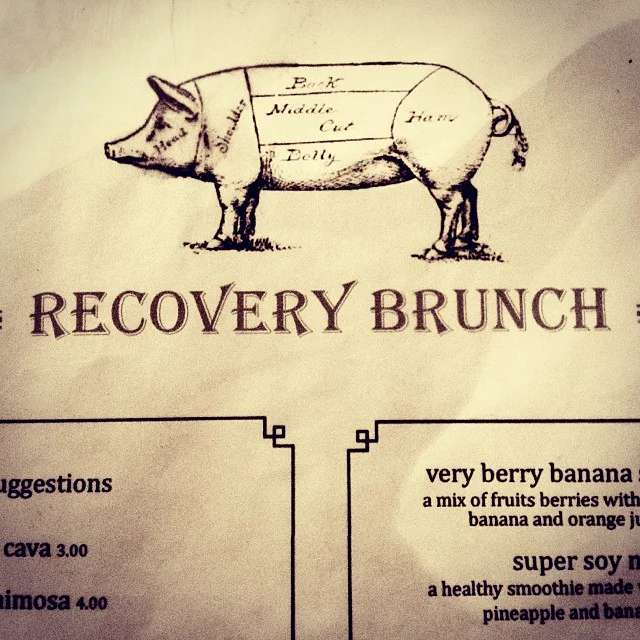 Back
Middle
Cut
Belly
Head
Shoulder
Ham
RECOVERY BRUNCH
uggestions
cava 3.00
imosa 4.00
very berry banana
a mix of fruits berries with
banana and orange ju
super soy
a healthy smoothie made
pineapple and bana